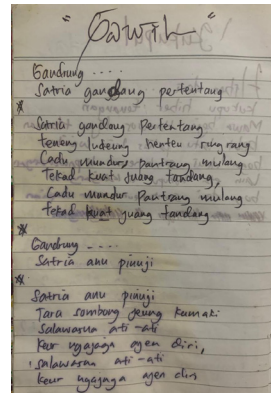 "GAWIL"
Gandrung ....
Satria gandang pertentang
Satria gandang pertentang
teneng ludeung henteu ringrang
Cadu mundur pantrang mulang
Tekad kuat juang tandang,
Cadu mundur pantrang mulang
tekad kuat juang tandang
Gandrung ....
Satria anu pinuji
Satria anu pinuji
Tara sombong jeung kumaki
Salawasna ati-ati
Keur ngajaga ajen diri,
salawasna ati-ati
Keur ngajaga ajen diri